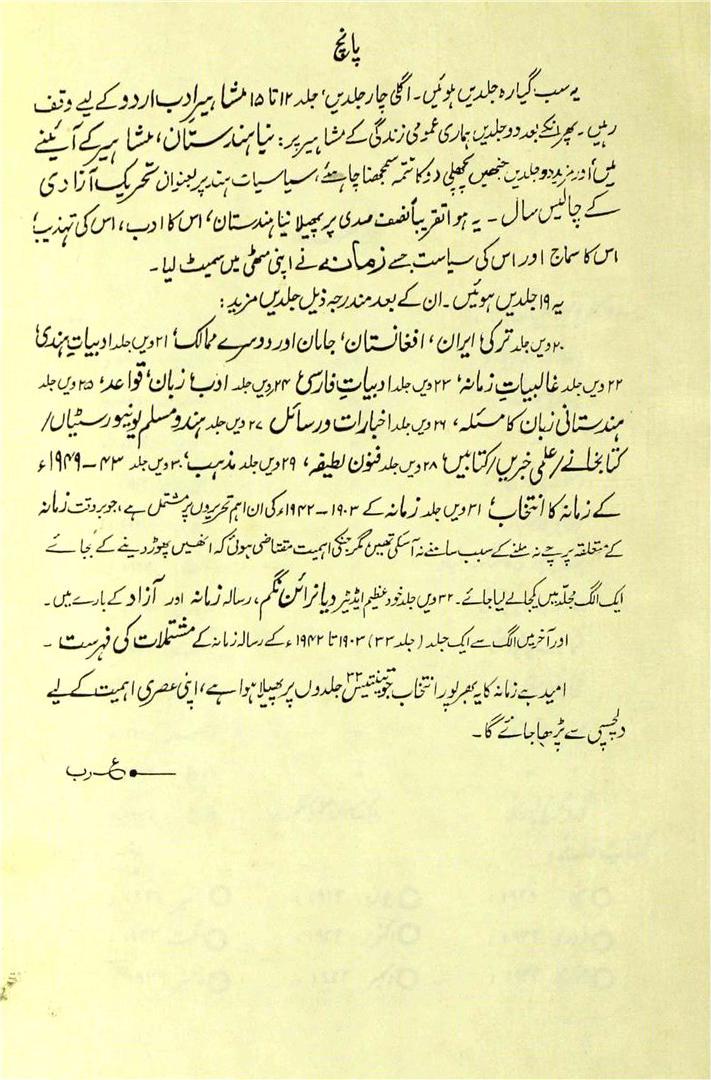 پانچ
یہ سب گیارہ جلدیں ہوئیں۔ اگلی چار جلدیں، جلد ۱۲ تا ۱۵ مشاہیر ادب اردو کے لیے وقف
رہیں۔ پھر انکے بعد دو جلدیں ہماری عمومی زندگی کے مشاہیر پر: نیا ہندستان، مشاہیر کے آئینے
میں، اور مزید دو جلدیں جنھیں پچھلی دو کا تتمّہ سمجھنا چاہئے، سیاسیات ہند پر بعنوان تحریک آزادی
کے چالیس سال۔ یہ ہوا تقریباً نصف صدی پر پھیلا نیا ہندستان، اس کا ادب، اس کی تہذیب،
اس کا سماج اور اس کی سیاست جسے زمانہ نے اپنی مٹھی میں سمیٹ لیا۔
یہ ۱۹ جلدیں ہوئیں۔ ان کے بعد مندرجہ ذیل جلدیں مزید:
۲۰ ویں جلد ترکی، ایران، افغانستان، جاپان اور دوسرے ممالک، ۲۱ ویں جلد ادبیات ہندی،
۲۲ ویں جلد غالبیاتِ زمانہ، ۲۳ ویں جلد ادبیاتِ فارسی، ۲۴ ویں جلد ادب، زبان، قواعد، ۲۵ ویں جلد
ہندستانی زبان کا مسئلہ، ۲۶ ویں جلد اخبارات و رسائل ۲۷ ویں جلد ہندو مسلم یونیورسٹیاں/
کتابخانے/علمی خبریں/کتابیں، ۲۸ ویں جلد فنون لطیفہ، ۲۹ ویں جلد مذہب، ۳۰ ویں جلد ۴۳–۱۹۴۹ء
کے زمانہ کا انتخاب، ۳۱ ویں جلد زمانہ کے ۱۹۰۳–۱۹۴۲ء کی ان اہم تحریروں پر مشتمل ہے، جو بروقت زمانہ
کے متعلقہ پرچے نہ ملنے کے سبب سامنے نہ آسکی تھیں مگر جنکی اہمیت متقاضی ہوئی کہ انھیں چھوڑ دینے کے بجائے
ایک الگ مجلّد میں یکجا لے لیا جائے۔ ۳۲ ویں جلد خود عظیم ایڈیٹر دیا نرائن نگم، رسالہ زمانہ اور آزاد کے بارے میں۔
اور آخر میں الگ سے ایک جلد (جلد ۳۳) ۱۹۰۳ تا ۱۹۴۲ء کے رسالہ زمانہ کے مشتملات کی فہرست۔
امید ہے زمانہ کا یہ بھرپور انتخاب جو تینتیس ۳۳ جلدوں پر پھیلا ہوا ہے، اپنی عصری اہمیت کے لیے
دلچسپی سے پڑھا جائے گا۔
ع رب